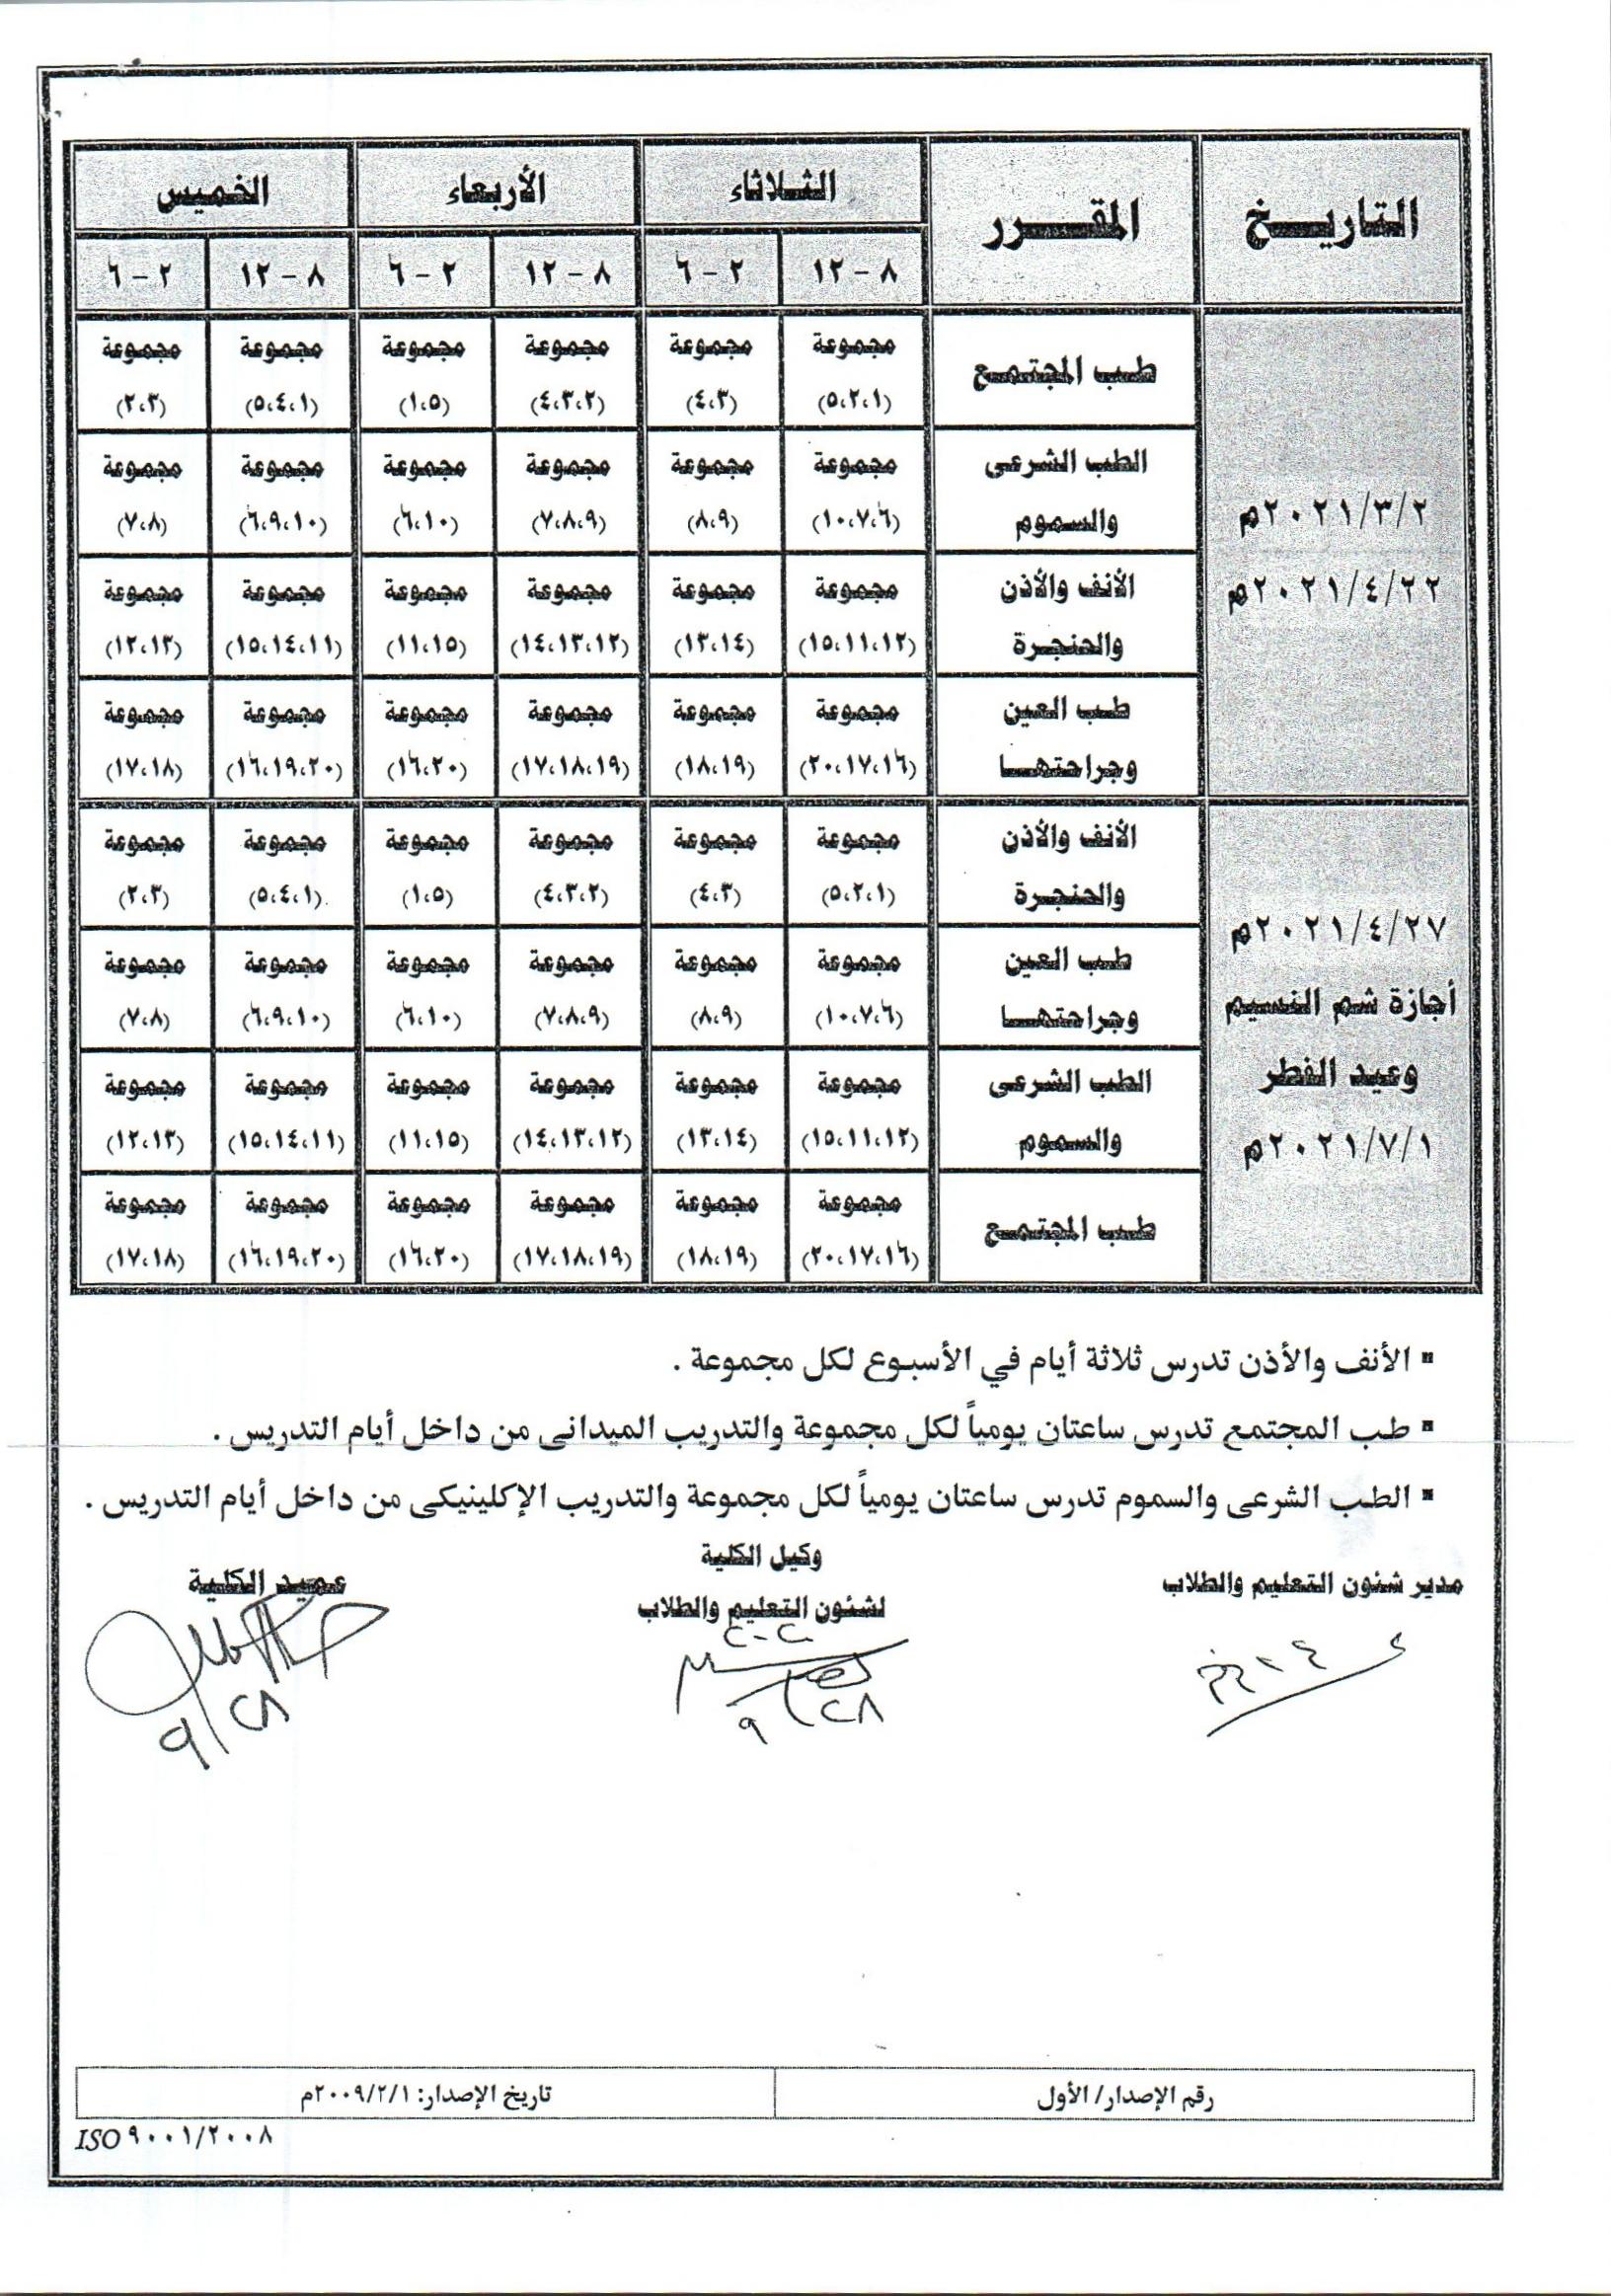 التاريخ المقرر الثلاثاء الأربعاء الخميس
٨ - ١٢ ٢ - ٦ ٨ - ١٢ ٢ - ٦ ٨ - ١٢ ٢ - ٦
٢٠٢١/٣/٢م
٢٠٢١/٤/٢٢م
طب المجتمع
مجموعة مجموعة مجموعة مجموعة مجموعة مجموعة
(٥،٢،١) (٤،٣) (٤،٣،٢) (١،٥) (٥،٤،١) (٢،٣)
الطب الشرعى مجموعة مجموعة مجموعة مجموعة مجموعة مجموعة
والسموم (١٠،٧،٦) (٨،٩) (٧،٨،٩) (٦،١٠) (٦،٩،١٠) (٧،٨)
الأنف والأذن مجموعة مجموعة مجموعة مجموعة مجموعة مجموعة
والحنجرة (١٥،١١،١٢) (١٣،١٤) (١٤،١٣،١٢) (١١،١٥) (١٥،١٤،١١) (١٢،١٣)
طب العين مجموعة مجموعة مجموعة مجموعة مجموعة مجموعة
وجراحتها (٢٠،١٧،١٦) (١٨،١٩) (١٧،١٨،١٩) (١٦،٢٠) (١٦،١٩،٢٠) (١٧،١٨)
٢٠٢١/٤/٢٧م
أجازة شم النسيم
وعيد الفطر
٢٠٢١/٧/١م
الأنف والأذن مجموعة مجموعة مجموعة مجموعة مجموعة مجموعة
والحنجرة (٥،٢،١) (٤،٣) (٤،٣،٢) (١،٥) (٥،٤،١) (٢،٣)
طب العين مجموعة مجموعة مجموعة مجموعة مجموعة مجموعة
وجراحتها (١٠،٧،٦) (٨،٩) (٧،٨،٩) (٦،١٠) (٦،٩،١٠) (٧،٨)
الطب الشرعى مجموعة مجموعة مجموعة مجموعة مجموعة مجموعة
والسموم (١٥،١١،١٢) (١٣،١٤) (١٤،١٣،١٢) (١١،١٥) (١٥،١٤،١١) (١٢،١٣)
طب المجتمع
مجموعة مجموعة مجموعة مجموعة مجموعة مجموعة
(٢٠،١٧،١٦) (١٨،١٩) (١٧،١٨،١٩) (١٦،٢٠) (١٦،١٩،٢٠) (١٧،١٨)
▪ الأنف والأذن تدرس ثلاثة أيام في الأسبوع لكل مجموعة .
▪ طب المجتمع تدرس ساعتان يومياً لكل مجموعة والتدريب الميدانى من داخل أيام التدريس .
▪ الطب الشرعى والسموم تدرس ساعتان يومياً لكل مجموعة والتدريب الإكلينيكى من داخل أيام التدريس .
مدير شئون التعليم والطلاب
وكيل الكلية
لشئون التعليم والطلاب
عميد الكلية
٩/٢٨
٩/٢٨
رقم الإصدار/ الأول تاريخ الإصدار: ٢٠٠٩/٢/١م
ISO ٩٠٠١/٢٠٠٨